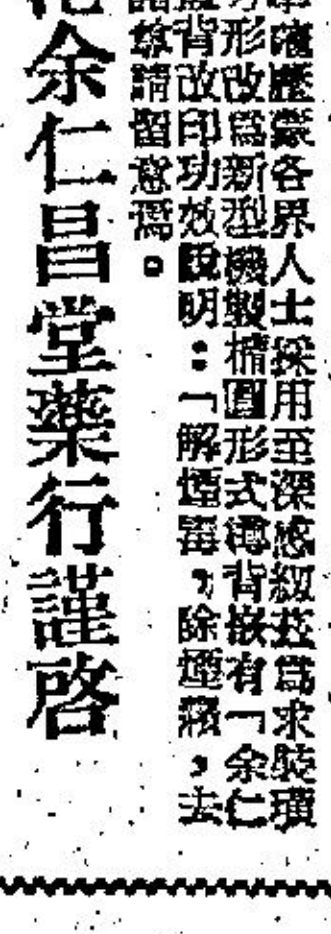 歷蒙各界人士採用至深感紉茲爲求裝璜
形改爲新型機製橢圓形式背嵌有「余仁
背改印功效說明：「解煙毒，除煙癮，去
請留意焉。
余仁昌堂藥行謹啓